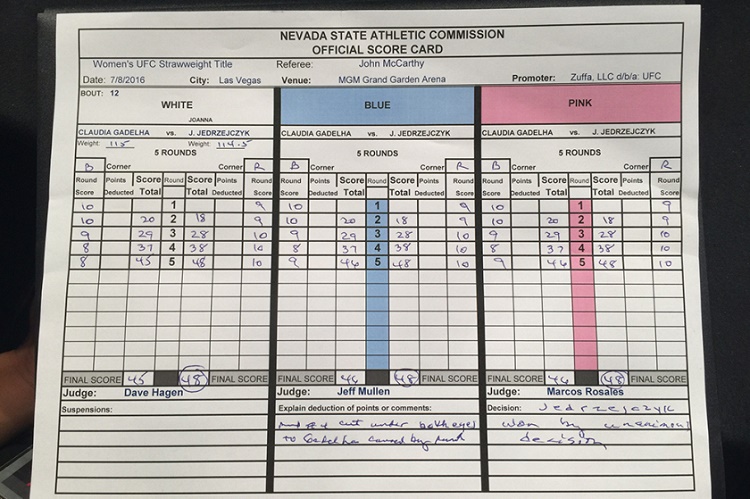 NEVADA STATE ATHLETIC COMMISSION
OFFICIAL SCORE CARD
Women's UFC Strawweight Title Referee: John McCarthy
Date: 7/8/2016 City: Las Vegas Venue: MGM Grand Garden Arena Promoter: Zuffa, LLC d/b/a: UFC
BOUT: 12
WHITE BLUE PINK
JOANNA
CLAUDIA GADELHA vs. J. JEDRZEJCZYK CLAUDIA GADELHA vs. J. JEDRZEJCZYK CLAUDIA GADELHA vs. J. JEDRZEJCZYK
Weight: 115 Weight: 114.5
5 ROUNDS 5 ROUNDS 5 ROUNDS
B Corner Corner R B Corner Corner R B Corner Corner R
Round Points Score Round Score Points Round Round Points Score Round Score Points Round Round Points Score Round Score Points Round
Score Deducted Total Total Deducted Score Score Deducted Total Total Deducted Score Score Deducted Total Total Deducted Score
10 1 9 10 1 9 10 1 9
10 20 2 18 9 10 20 2 18 9 10 20 2 18 9
9 29 3 28 10 9 29 3 28 10 9 29 3 28 10
8 37 4 38 10 8 37 4 38 10 8 37 4 38 10
8 45 5 48 10 9 46 5 48 10 9 46 5 48 10
FINAL SCORE 45 48 FINAL SCORE FINAL SCORE 46 48 FINAL SCORE FINAL SCORE 46 48 FINAL SCORE
Judge: Dave Hagen Judge: Jeff Mullen Judge: Marcos Rosales
Suspensions: Explain deduction of points or comments: Decision: Jedrzejczyk
#4 cut under both eyes won by unanimous
to Gadelha caused by decision